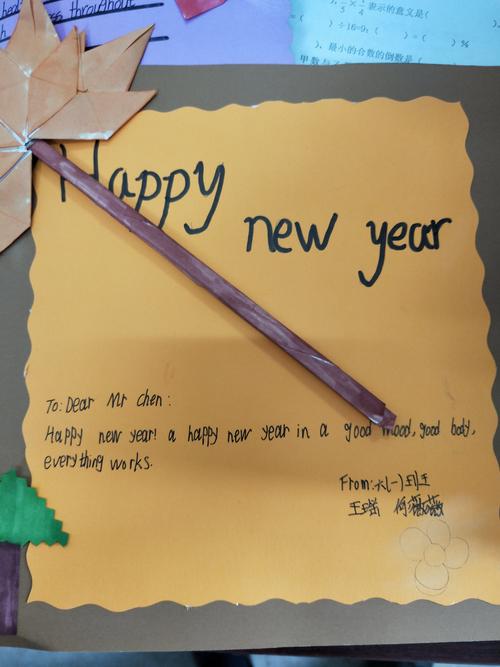 throughout
),  × 1/4 表示的意义是(
) ÷16=9:( ) =( )%
), 最小的合数的倒数是(
甲数与
Happy
new year
To: Dear Mr chen:
Happy new year! a happy new year in a good mood, good body,
everything works.
From: 六(一)班
王瑶 何薇薇